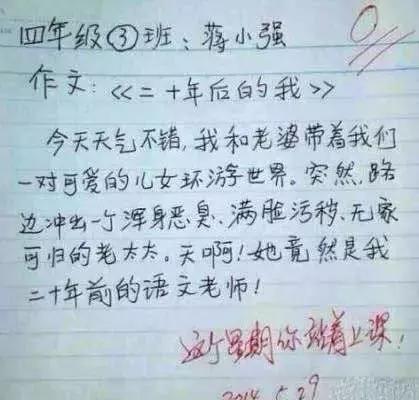 四年级③班：蒋小强
0
作文：<<二十年后的我>>
今天天气不错，我和老婆带着我们
一对可爱的儿女环游世界。突然，路
边冲出一个浑身恶臭、满脸污秽、无家
可归的老太太。天啊！她竟然是我
二十年前的语文老师！
这个星期你站着上课！
2014.5.29